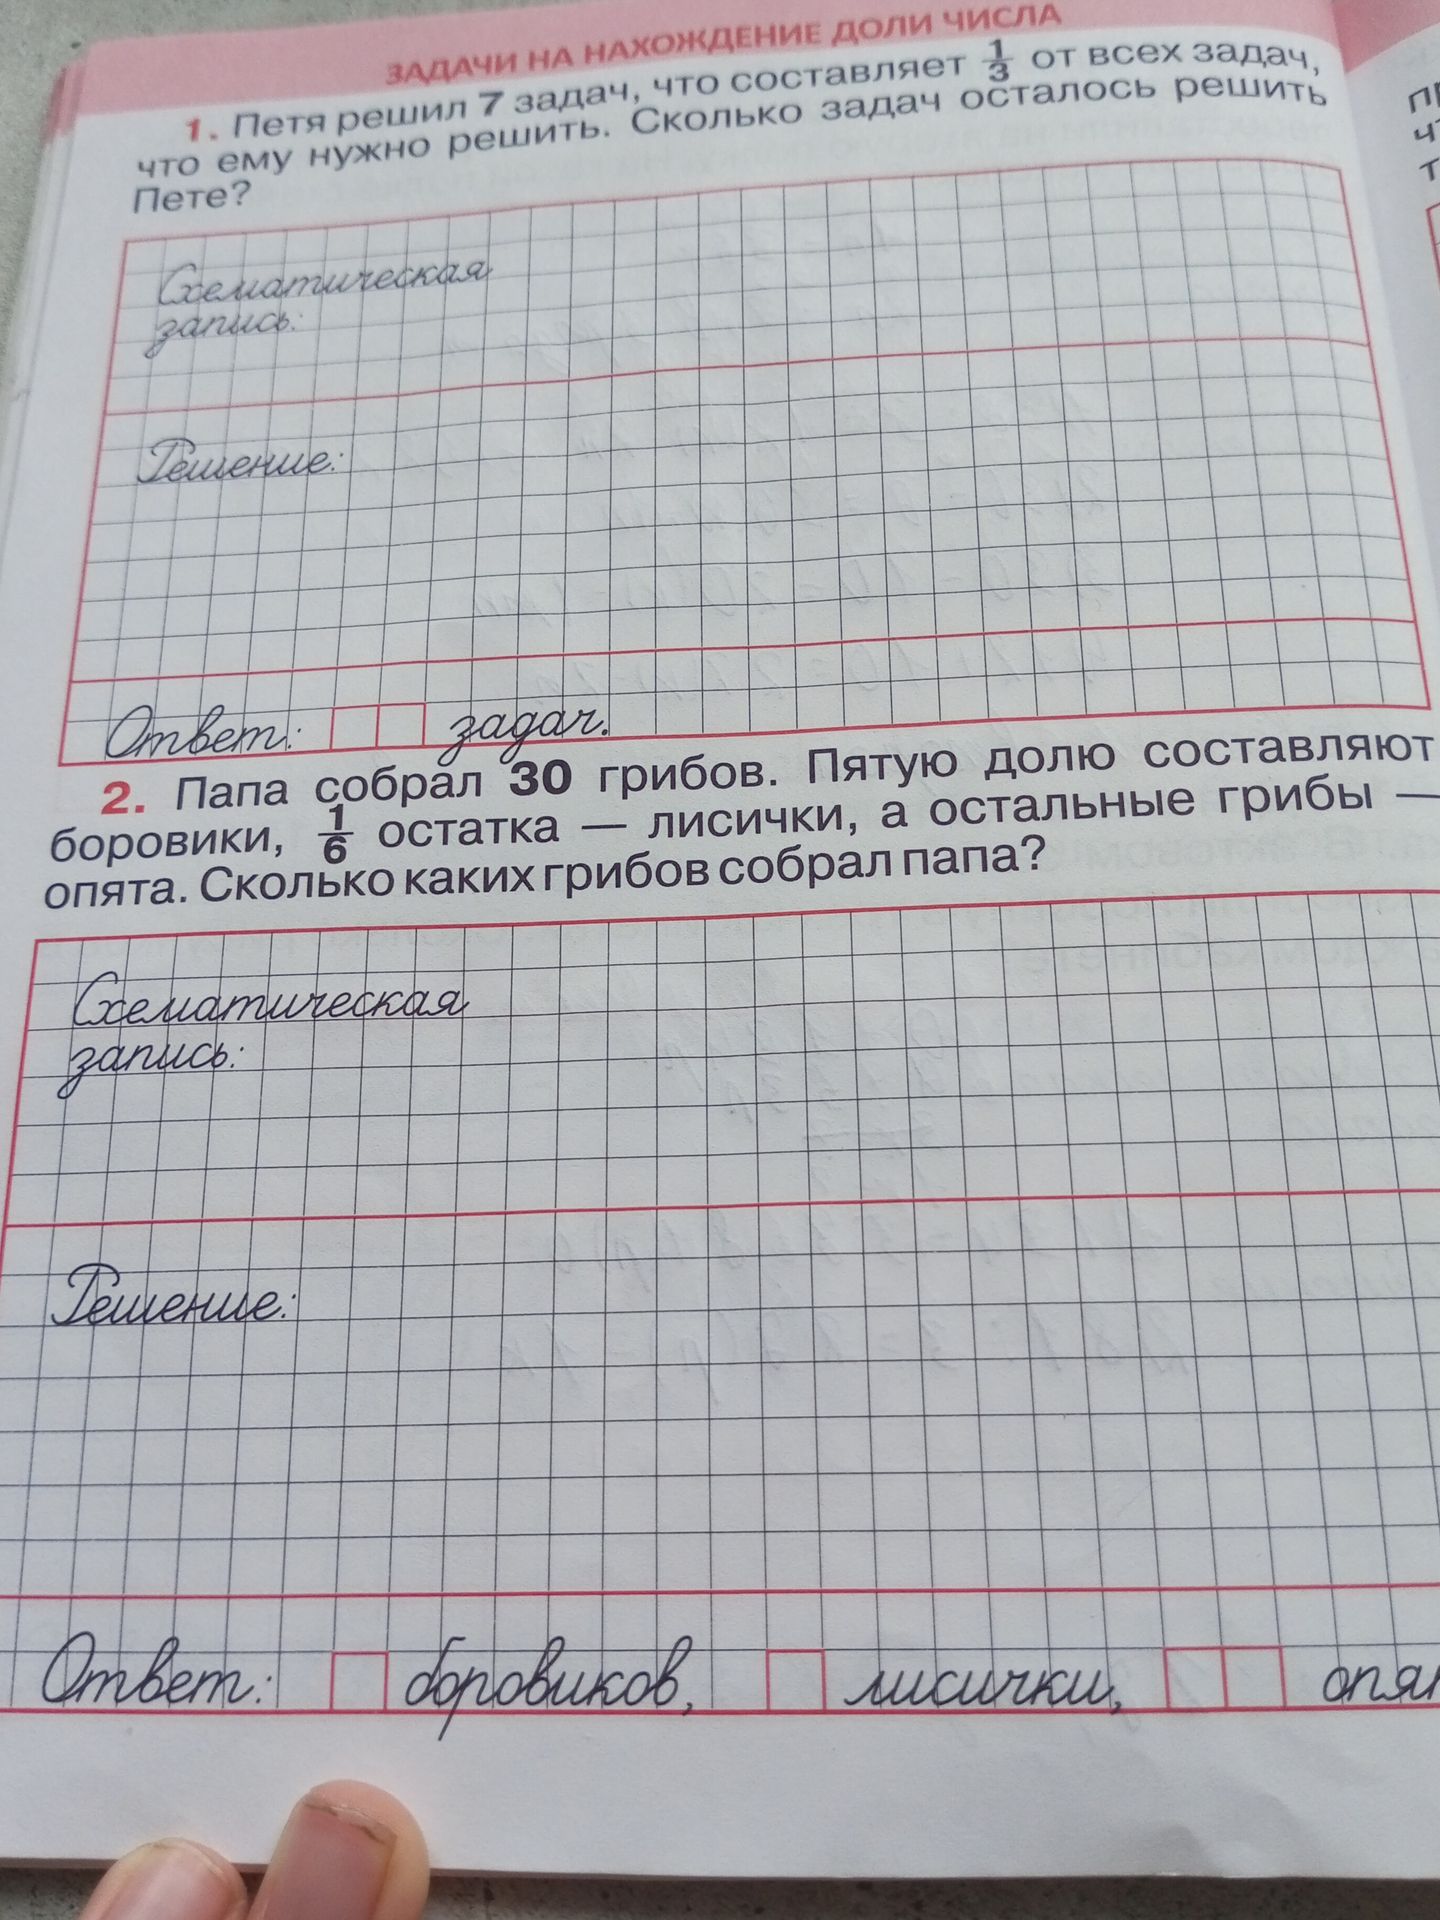 ЗАДАЧИ НА НАХОЖДЕНИЕ ДОЛИ ЧИСЛА
1. Петя решил 7 задач, что составляет 1/3 от всех задач,
что ему нужно решить. Сколько задач осталось решить
Пете?
Схематическая
запись:
Решение:
Ответ: задач.
2. Папа собрал 30 грибов. Пятую долю составляют
боровики, 1/6 остатка — лисички, а остальные грибы —
опята. Сколько каких грибов собрал папа?
Схематическая
запись:
Решение:
Ответ: боровиков, лисички,